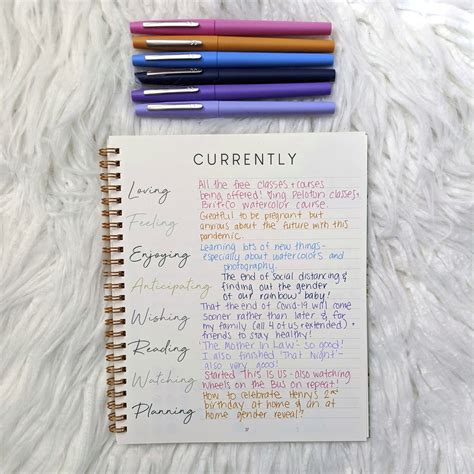 CURRENTLY
Loving
All the free classes + courses
being offered! Peloton classes +
Brit+Co watercolor course.
Feeling
Grateful to be pregnant but
anxious about the future with this
pandemic.
Enjoying
Learning lots of new things-
especially about watercolors and
photography.
Anticipating
The end of social distancing &
finding out the gender
of our rainbow baby!
Wishing
That the end of Covid-19 will come
sooner rather than later & for
my family (all 4 of us + extended) +
friends to stay healthy!
Reading
'The Mother In Law'- so good!
I also finished 'That Night'-
also very good!
Watching
Started This Is Us - also watching
Wheels on the Bus on repeat!
Planning
How to celebrate Henry's 2nd
birthday at home & an at
home gender reveal?